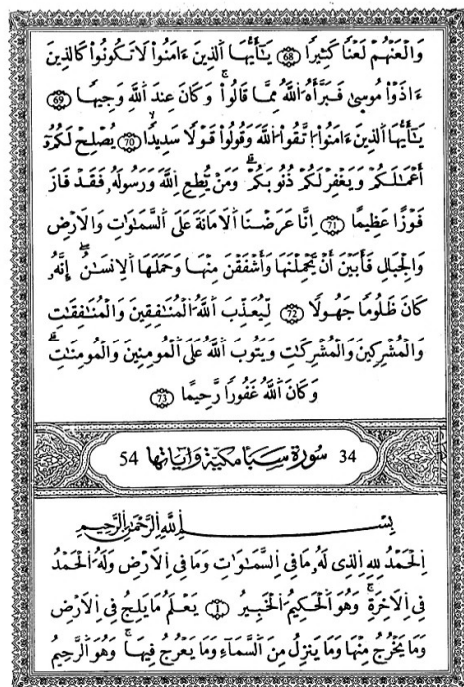 وَالْعَنْهُمْ لَعْنًا كَثِيرًا 68 يَٰأَيُّهَا اَلذِينَ ءَامَنُوا لَا تَكُونُوا كَالذِينَ
ءَاذَوْا مُوسَىٰ فَبَرَّأَهُ اُللَّهُ مِمَّا قَالُوا وَكَانَ عِندَ اَللَّهِ وَجِيهًا 69
يَٰأَيُّهَا اَلذِينَ ءَامَنُوا اُتَّقُوا اُللَّهَ وَقُولُوا قَوْلًا سَدِيدًا 70 يُصْلِحْ لَكُمُ
أَعْمَٰلَكُمْ وَيَغْفِرْ لَكُمْ ذُنُوبَكُمْ وَمَنْ يُطِعِ اِللَّهَ وَرَسُولَهُ فَقَدْ فَازَ
فَوْزًا عَظِيمًا 71 اِنَّا عَرَضْنَا اَلَامَانَةَ عَلَى اَلسَّمَٰوَاتِ وَالَارْضِ
وَالْجِبَالِ فَأَبَيْنَ أَنْ يَّحْمِلْنَهَا وَأَشْفَقْنَ مِنْهَا وَحَمَلَهَا اَلِانسَٰنُ إِنَّهُ
كَانَ ظَلُومًا جَهُولًا 72 لِّيُعَذِّبَ اَللَّهُ اُلْمُنَافِقِينَ وَالْمُنَافِقَاتِ
وَالْمُشْرِكِينَ وَالْمُشْرِكَٰتِ وَيَتُوبَ اَللَّهُ عَلَى اَلْمُومِنِينَ وَالْمُومِنَٰتِ
وَكَانَ اَللَّهُ غَفُورًا رَّحِيمًا 73
34 سورة سبإ مكية وآياتها 54
بِسْمِ اِللَّهِ اِلرَّحْمَٰنِ اِلرَّحِيمِ
اِلْحَمْدُ لِلهِ اِلذِي لَهُ مَا فِي اِلسَّمَٰوَاتِ وَمَا فِي اِلَارْضِ وَلَهُ اُلْحَمْدُ
فِي اِلَاخِرَةِ وَهُوَ اَلْحَكِيمُ اُلْخَبِيرُ 1 يَعْلَمُ مَا يَلِجُ فِي اِلَارْضِ
وَمَا يَخْرُجُ مِنْهَا وَمَا يَنزِلُ مِنَ اَلسَّمَاءِ وَمَا يَعْرُجُ فِيهَا وَهُوَ اَلرَّحِيمُ